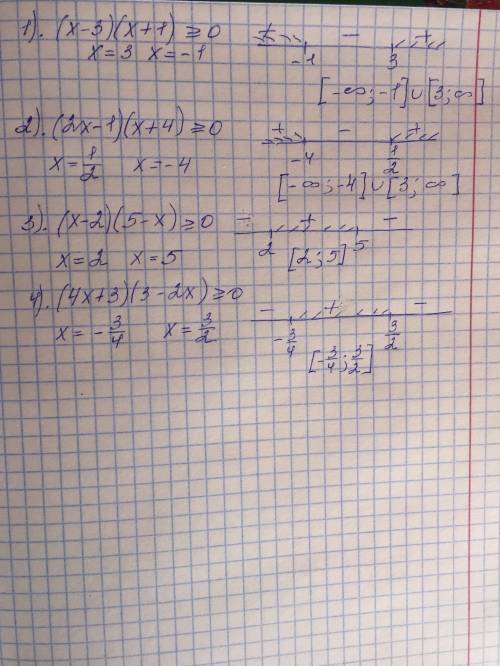 1). (x-3)(x+1) ≥0 + - +
x=3 x=-1 -1 3
[-∞;-1]∪[3;∞]
2). (2x-1)(x+4) ≥0 + - +
x=1/2 x=-4 -4 1/2
[-∞;-4]∪[3;∞]
3). (x-2)(5-x)≥0 - + -
x=2 x=5 2 [2;5] 5
4). (4x+3)(3-2x)≥0 - + -
x=-3/4 x=3/2 -3/4 3/2
[-3/4;3/2]